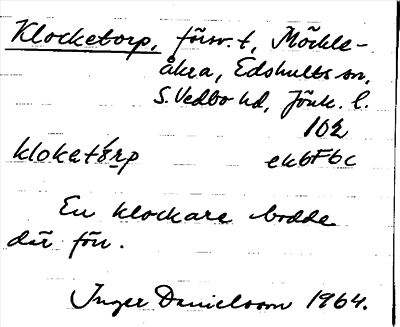 Klocketorp, försv. t, Möckle-
åkra, Edshults sn,
S. Vedbo hd, Jönk. l.
102
klokatơrp ek6F6c
En klockare bodde
där förr.
Inger Danielsson 1964.